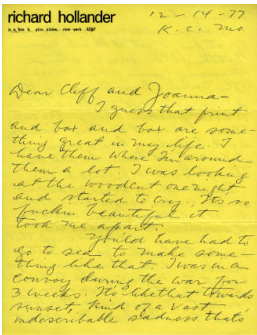 richard hollander
12-14-77
K.C. Mo.
Dear Cliff and Joanna-
I guess that print
and box and box are some-
thing great in my life. I
have them where I'm around
them a lot. I was looking
at the woodcut one night
and started to cry. Its so
fuckin beautiful it
took me apart.
Y
ould have had to
go to sea to make some-
thing like that. I was in a
convoy during the war for
3 weeks. It's like that towards
sunset, kind of a vast
indescribable sadness that's